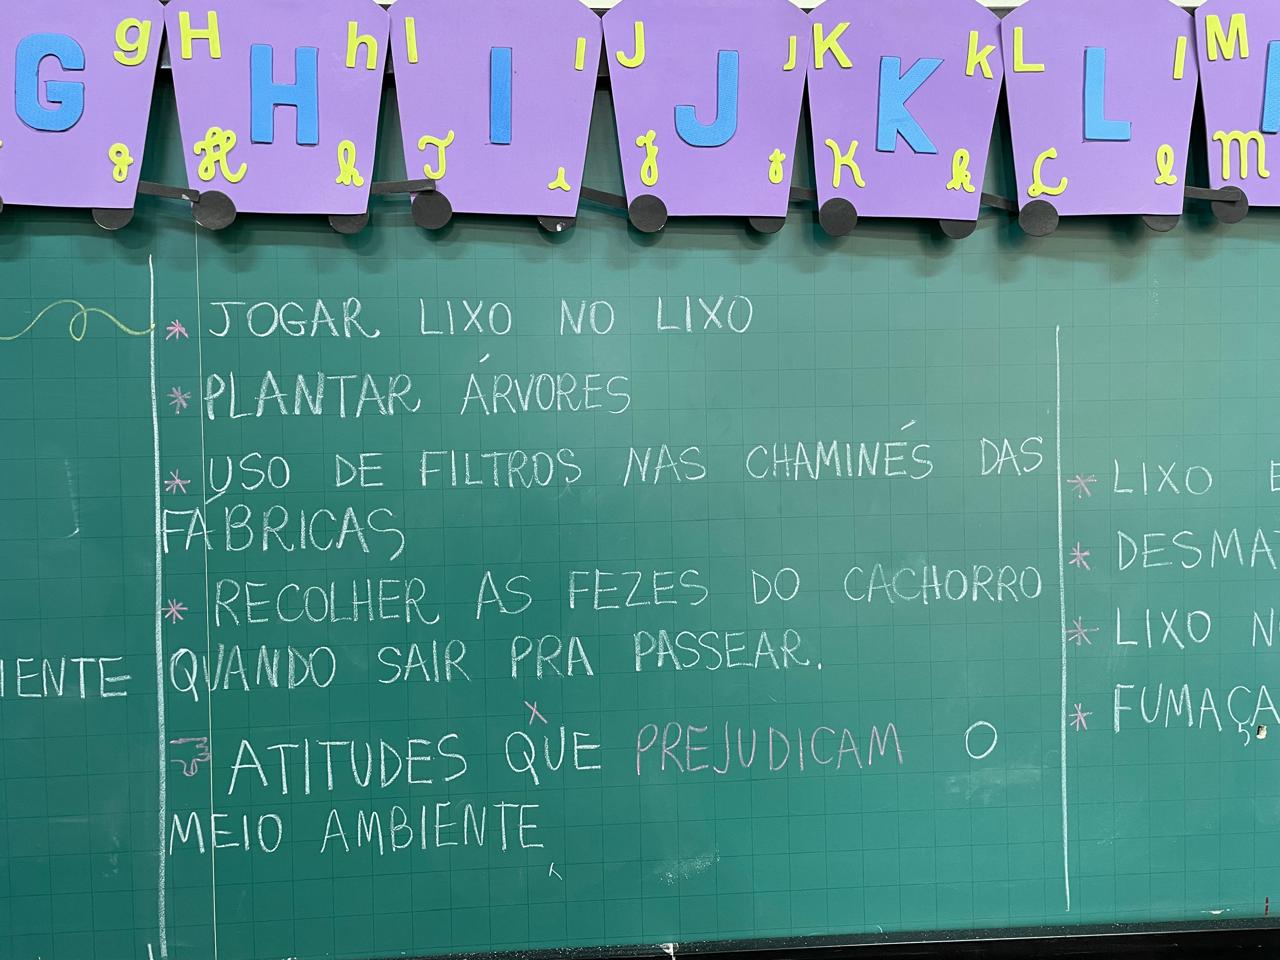 G g H H h I I J J K K k L L l M
g H h I i J j K k L l M
* JOGAR LIXO NO LIXO
* PLANTAR ÁRVORES
* USO DE FILTROS NAS CHAMINÉS DAS
FÁBRICAS
* RECOLHER AS FEZES DO CACHORRO
QUANDO SAIR PRA PASSEAR.
ATITUDES QUE PREJUDICAM O
MEIO AMBIENTE
* LIXO
*
* LIXO
* FUMAÇA